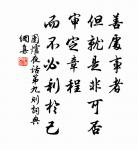 善處事者
但就是非可否
審定章程
而不必利於己
圍爐夜話第九則詞典
網喜